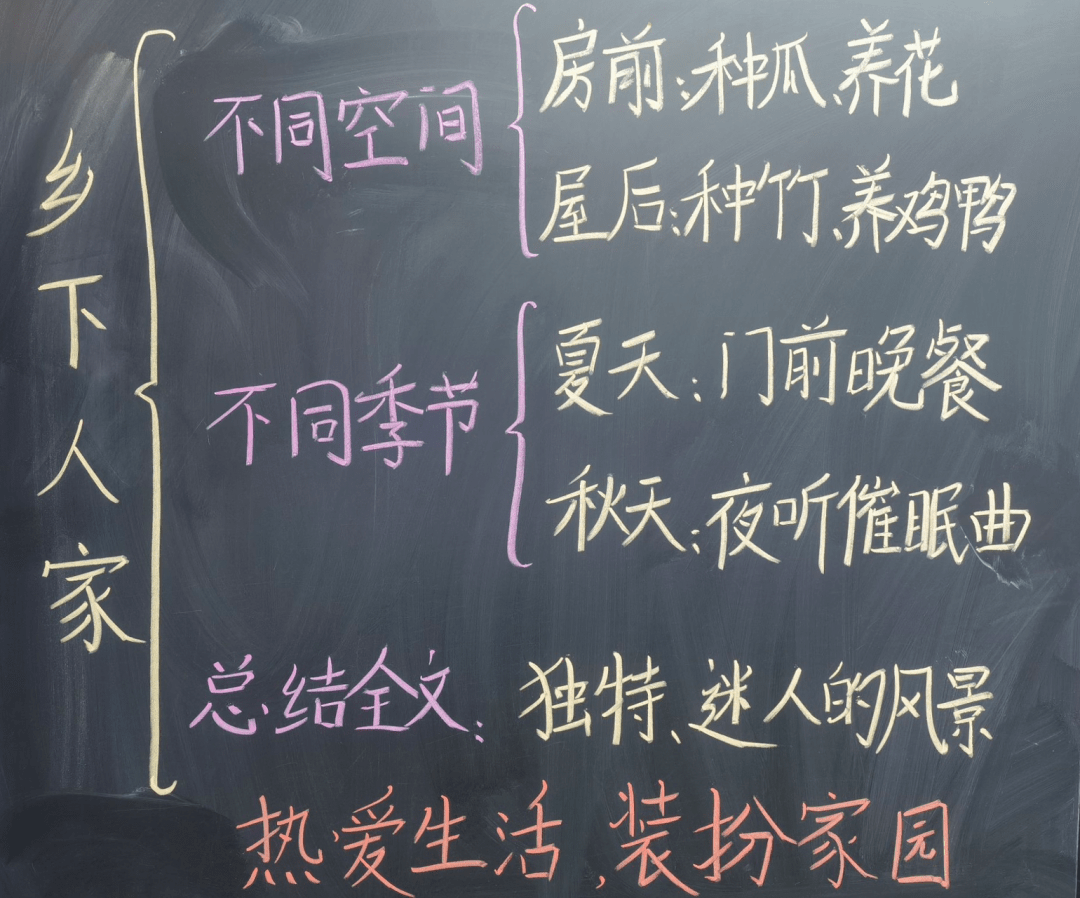 乡下人家
不同空间
房前:种瓜、养花
屋后:种竹、养鸡鸭
不同季节
夏天:门前晚餐
秋天:夜听催眠曲
总结全文:独特、迷人的风景
热爱生活,装扮家园